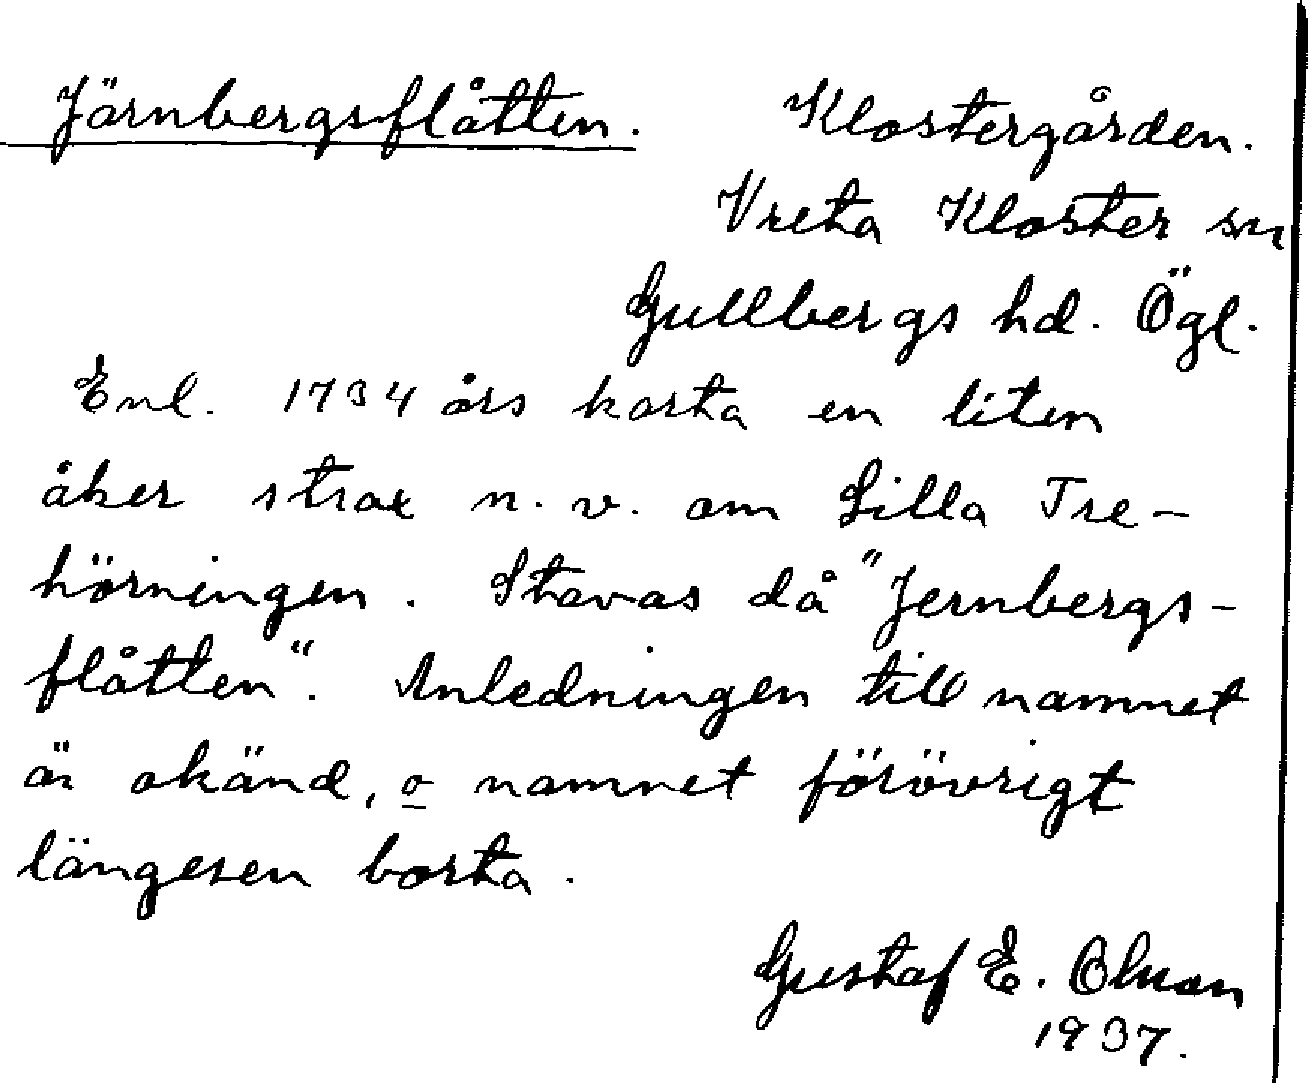 Järnbergsflåtten. Klostergården.
Vreta Kloster sn
Gullbergs hd. Ögl.
Enl. 1734 års karta en liten
åker strax n. v. om Lilla Tre-
hörningen. Stavas då "Jernbergs-
flåtten". Anledningen till namnet
är okänd, o namnet förövrigt
längesen borta.
Gustaf E. Olsson
1937.